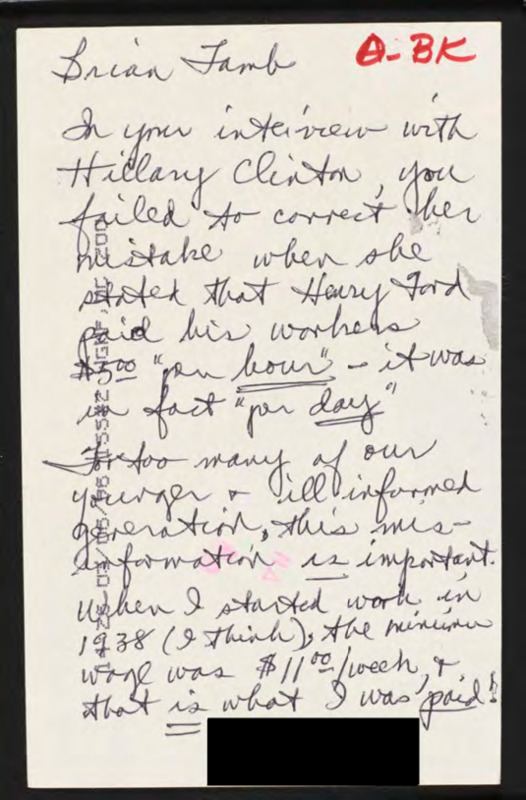 Brian Lamb
A-BK
In your interview with
Hillary Clinton, you
failed to correct her
mistake when she
stated that Henry Ford
paid his workers
$5.00 "per hour" - it was
in fact "per day"
For too many of our
younger & ill informed
generation, this mis-
information is important.
When I started work in
1938 (I think), the minimum
wage was $11.00/week, &
that is what I was paid!